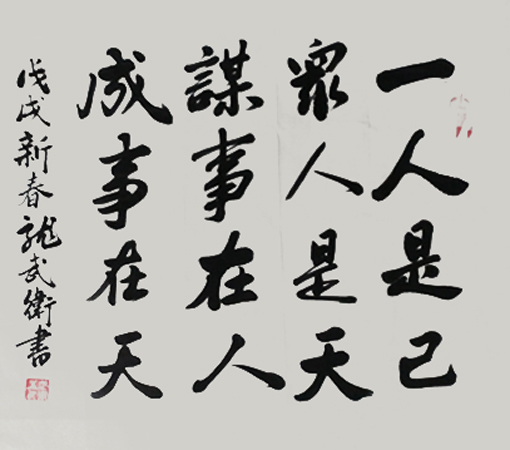 一人是己
眾人是天
謀事在人
成事在天
戊戌新春龍武衛書